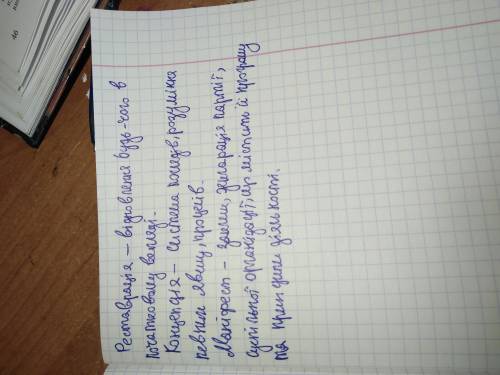 Реставрація – відновлення будь-чого в
початковому вигляді.
Концепція – система поглядів, розуміння
певних явищ, процесів.
Маніфест – заклик, декларація партії,
суспільної організації, що містить її програму
та принципи діяльності.
46